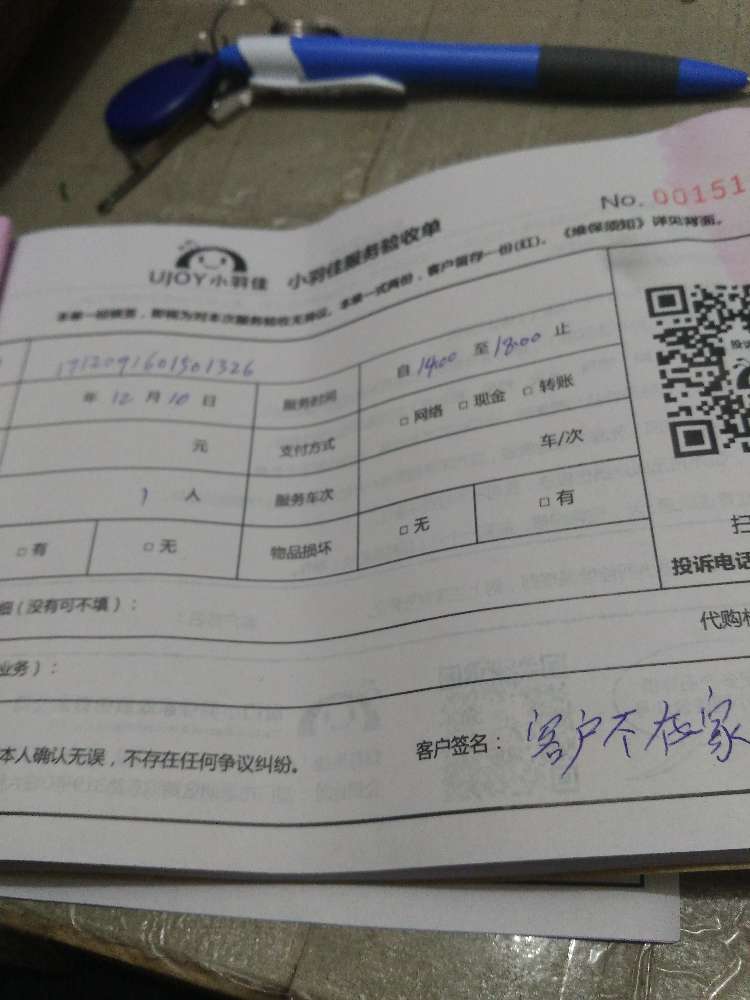 No. 00151
UJOY小羽佳 小羽佳服务验收单
本单一经核签，即视为对本次服务验收无异议。本单一式两份，客户留存一份(红)。《维保须知》详见背面。
1912091601501326 服务时间 自 14:00 至 18:00 止
年 12 月 10 日 支付方式 □ 网络 □ 现金 □ 转账
元 服务车次 车/次
1 人 物品损坏 □ 无 □ 有
□ 有 □ 无
扫
投诉电话
细（没有可不填）：
代购
业务）：
本人确认无误，不存在任何争议纠纷。 客户签名： 客户不在家